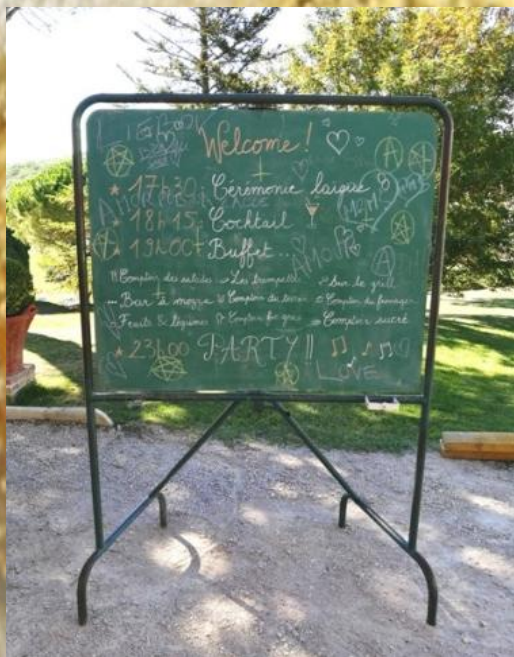 Welcome!
17h30: Cérémonie laïque
18h15: Cocktail
19h00: Buffet...
Comptoir des salades Les trempettes Sur le grill
Bar à mozza Comptoir du terroir Comptoir du fromager
Fruits & légumes Comptoir foie gras Comptoir sucré
23h00 PARTY !!
AMOUR
A
A
A
LOVE